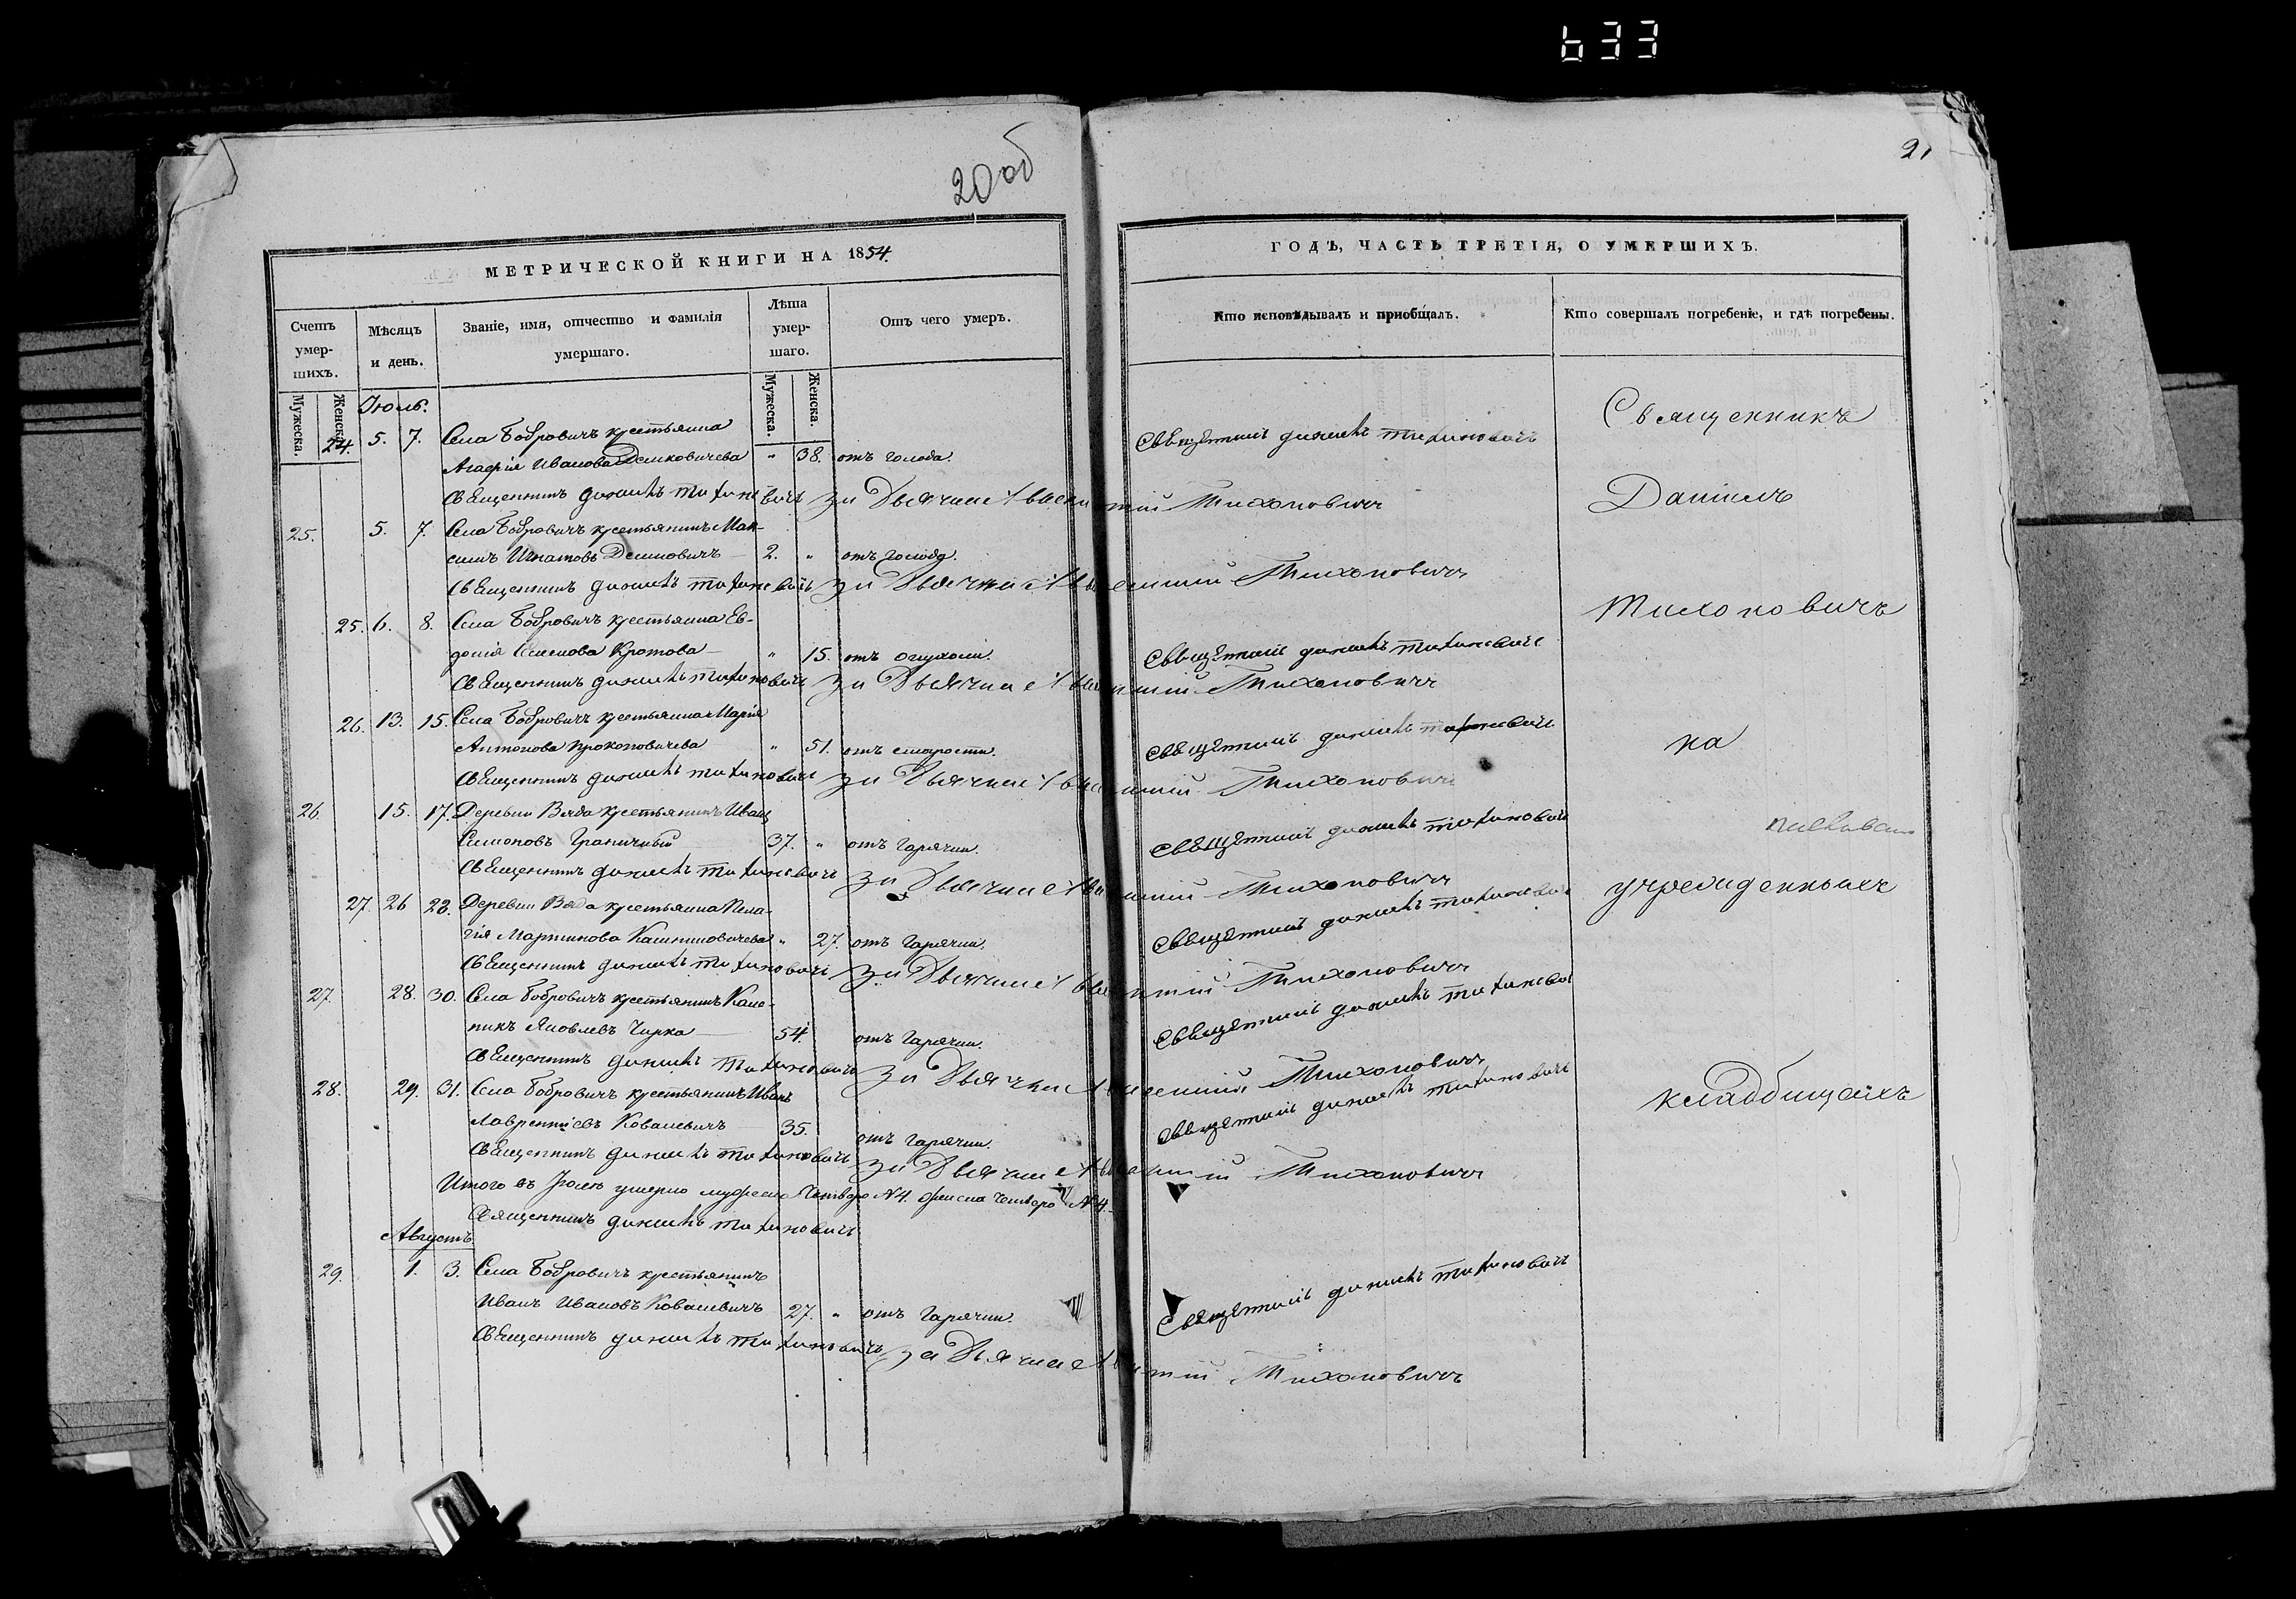 633
20 об
21
МЕТРИЧЕСКОЙ КНИГИ НА 1854.
Счетъ умершихъ.
Мужеска.
Женска.
Мѣсяцъ и день.
Званіе, имя, отчество и фамилія умершаго.
Лѣта умершаго.
Мужеска.
Женска.
Отъ чего умеръ.
Іюль.
24. 5. 7. Села Бобровичъ крестьянка
Агафія Иванова Демковичева " 38. отъ голода.
Священникъ Даніилъ Тихоновичъ За Дьячка Тихоновичъ
25. 5. 7. Села Бобровичъ крестьянинъ Мак-
симъ Игнатовъ Демковичъ 2. " отъ голода.
Священникъ Даніилъ Тихоновичъ За Дьячка Тихоновичъ
25. 6. 8. Села Бобровичъ крестьянка Ев-
докія Кротова " 15. отъ опухоли.
Священникъ Даніилъ Тихоновичъ За Дьячка Тихоновичъ
26. 13. 15. Села Бобровичъ крестьянка Марія
Антонова Прокоповичева " 51. отъ старости.
Священникъ Даніилъ Тихоновичъ За Дьячка Тихоновичъ
26. 15. 17. Деревни Вяда крестьянинъ Иванъ
Симоновъ Граничный 37. " отъ Гарячки.
Священникъ Даніилъ Тихоновичъ За Дьячка Тихоновичъ
27. 26 28. Деревни Вяда крестьянка Пела-
гія Мартинова " 27. отъ Гарячки.
Священникъ Даніилъ Тихоновичъ За Дьячка Тихоновичъ
27. 28. 30. Села Бобровичъ крестьянинъ Кало-
никъ Яковлевъ Чирка 54. отъ Гарячки.
Священникъ Даніилъ Тихоновичъ За Дьячка Тихоновичъ
28. 29. 31. Села Бобровичъ крестьянинъ Иванъ
Лаврентіевъ Ковалевичъ 35. отъ Гарячки.
Священникъ Даніилъ Тихоновичъ За Дьячка Тихоновичъ
Итого въ Іюлѣ умерло мужеска Четверо №4. женска Четверо №4.
Священникъ Даніилъ Тихоновичъ
Августъ
29. 1. 3. Села Бобровичъ крестьянинъ
Иванъ Ивановъ Ковалевичъ 27. " отъ Гарячки.
Священникъ Даніилъ Тихоновичъ За Дьячка Тихоновичъ
ГОДЪ, ЧАСТЬ ТРЕТІЯ, О УМЕРШИХЪ.
Кто исповѣдывалъ и пріобщалъ.
Кто совершалъ погребеніе, и гдѣ погребены.
Священникъ Даніилъ Тихоновичъ
Священникъ Даніилъ Тихоновичъ
Священникъ Даніилъ Тихоновичъ
Священникъ Даніилъ Тихоновичъ
Священникъ Даніилъ Тихоновичъ
Священникъ Даніилъ Тихоновичъ
Священникъ Даніилъ Тихоновичъ
Священникъ Даніилъ Тихоновичъ
Священникъ
Даніилъ
Тихоновичъ
на
учрежденныхъ
кладбищахъ